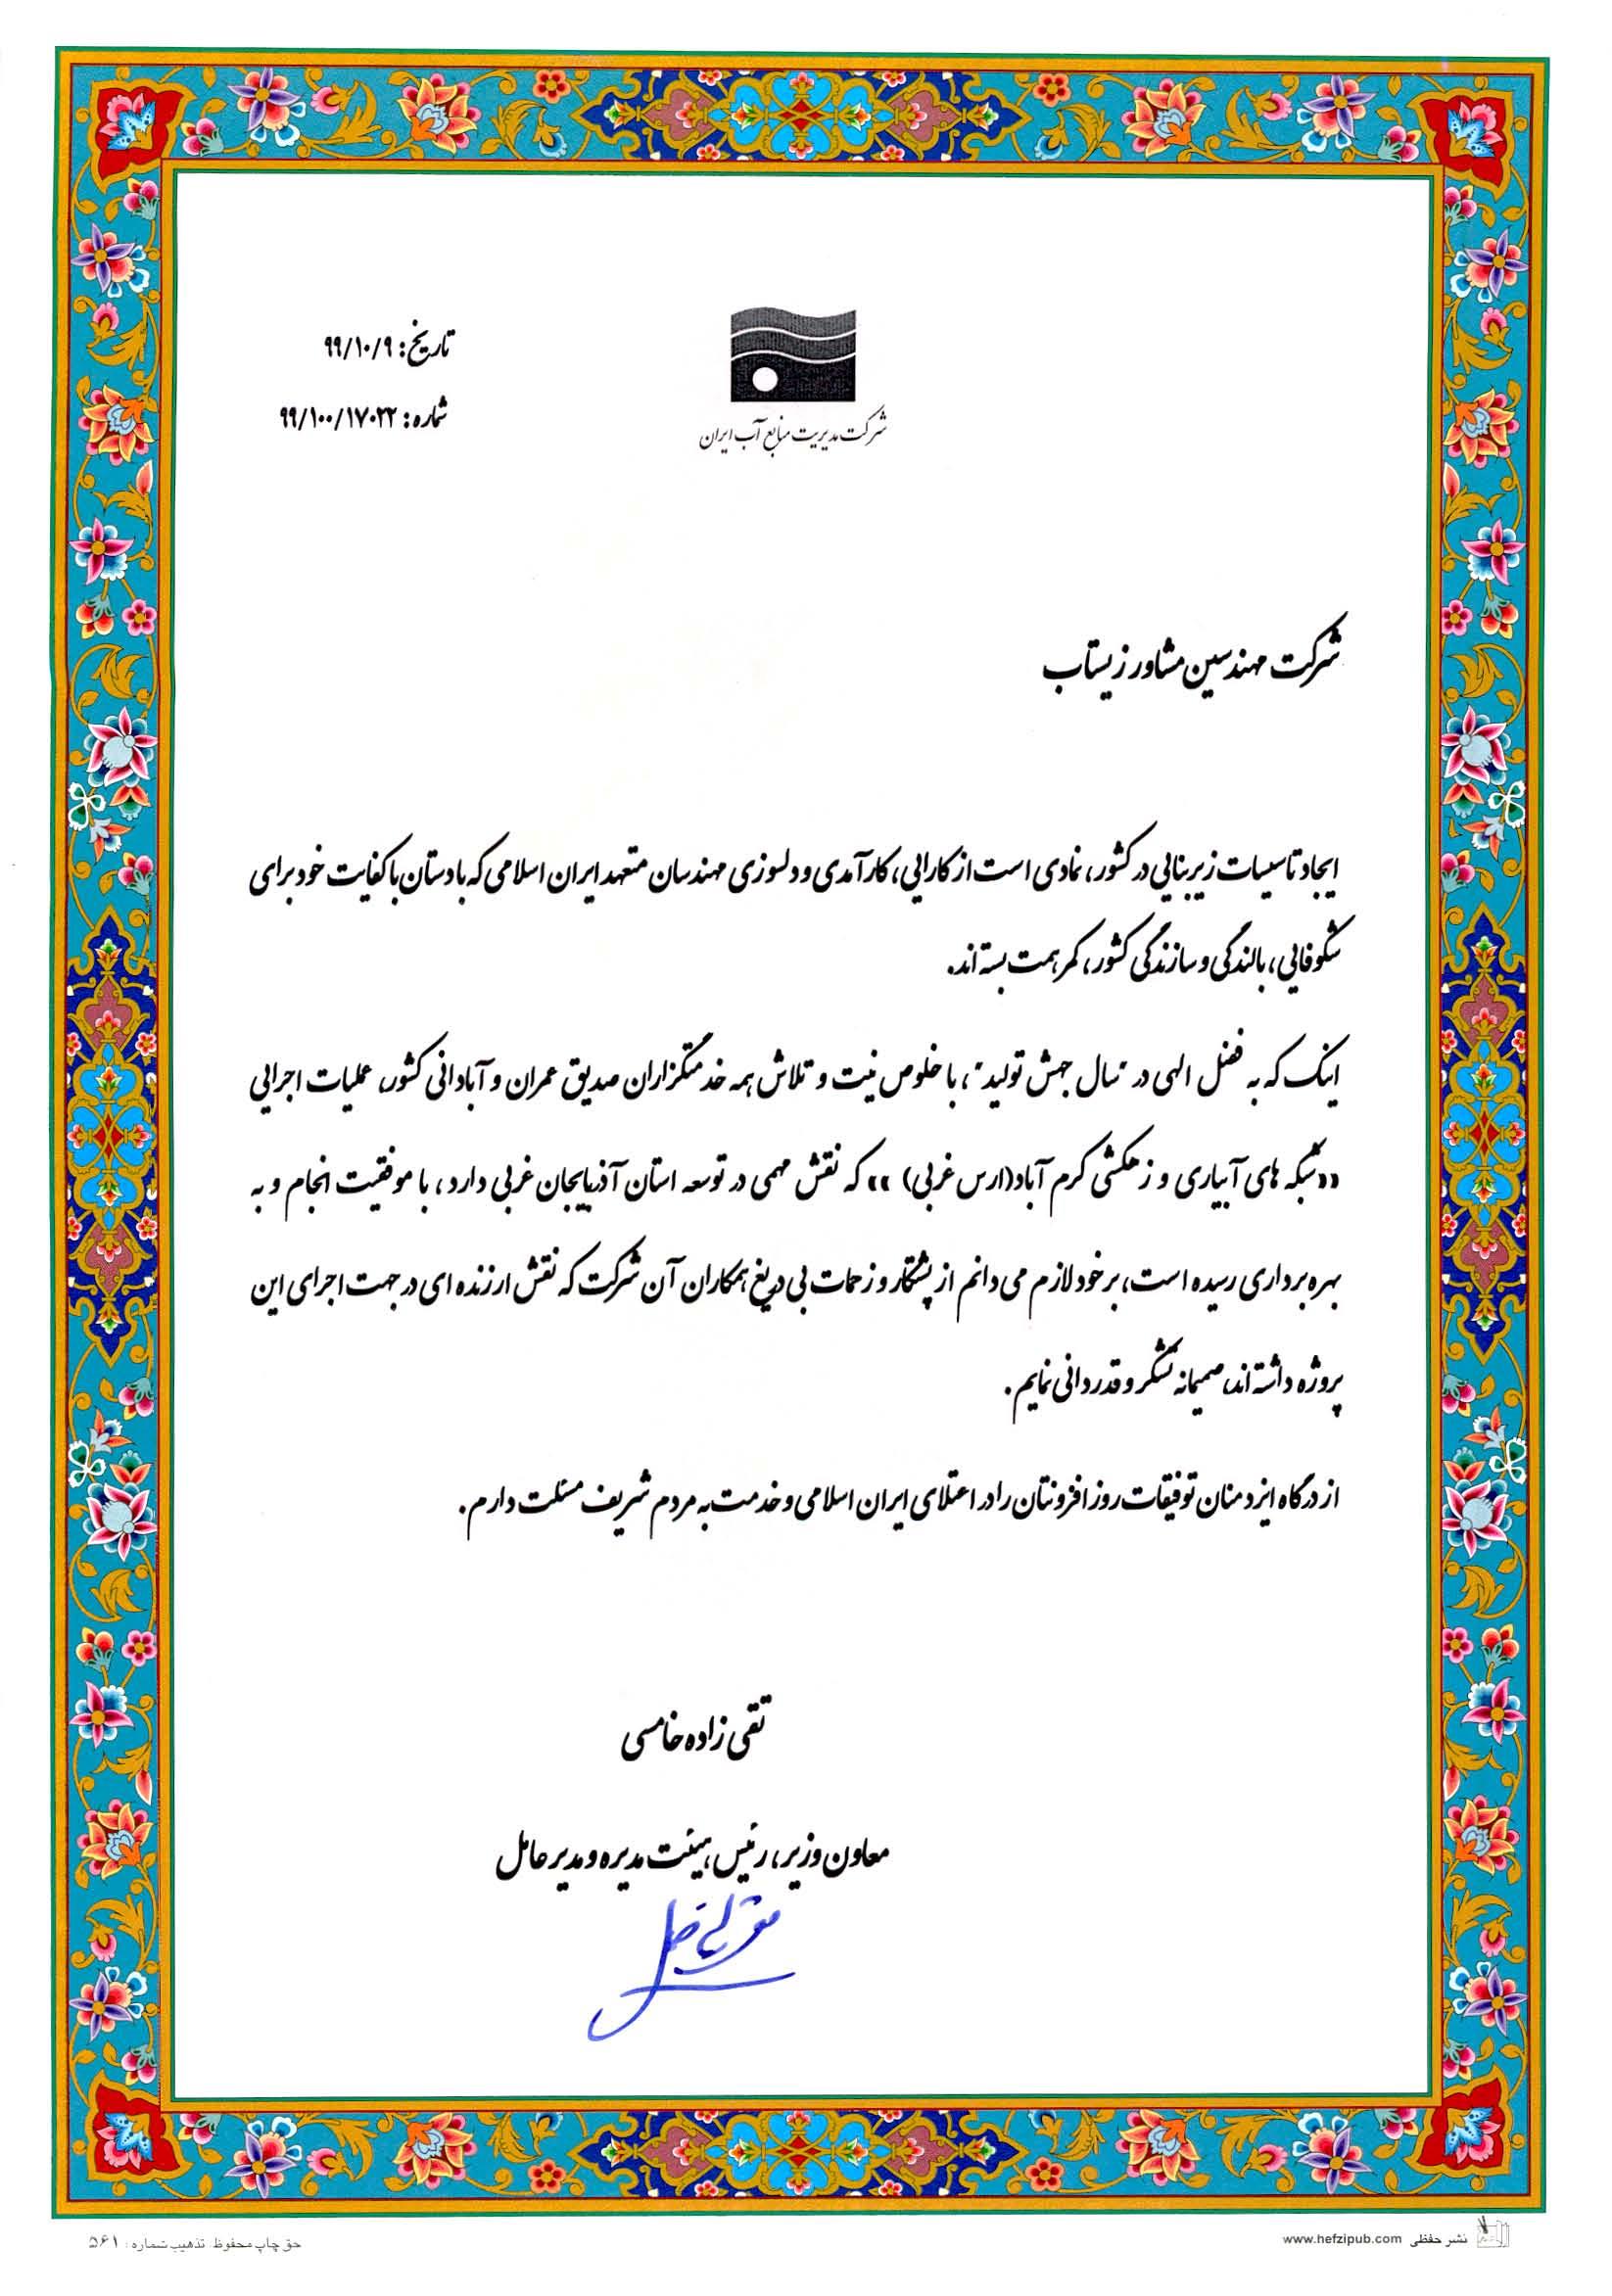 تاریخ: ۹۹/۱۰/۹
شماره: ۹۹/۱۰۰/۱۷۰۲۲
شرکت مدیریت منابع آب ایران
شرکت مهندسین مشاور زیستاب
ایجاد تاسیسات زیربنایی در کشور، نمادی است از کارایی، کارآمدی و دلسوزی مهندسان متعهد ایران اسلامی که با دستان با کفایت خود برای
شکوفایی، بالندگی و سازندگی کشور، کمر همت بسته اند.
اینک که به فضل الهی در "سال جهش تولید"، با خلوص نیت و تلاش همه خدمتگزاران صدیق عمران و آبادانی کشور، عملیات اجرایی
«شبکه های آبیاری و زهکشی کرم آباد(ارس غربی) » که نقش مهمی در توسعه استان آذربایجان غربی دارد، با موفقیت انجام و به
بهره برداری رسیده است، بر خود لازم می دانم از پشتکار و زحمات بی دریغ همکاران آن شرکت که نقش ارزنده ای در جهت اجرای این
پروژه داشته اند، صمیمانه تشکر و قدردانی نمایم.
از درگاه ایزد منان توفیقات روزافزونتان را در اعتلای ایران اسلامی و خدمت به مردم شریف مسئلت دارم.
تقی زاده خامسی
معاون وزیر، رئیس هیئت مدیره و مدیر عامل
نشر حفظی www.hefzipub.com
حق چاپ محفوظ تذهیب شماره: ۵۶۱